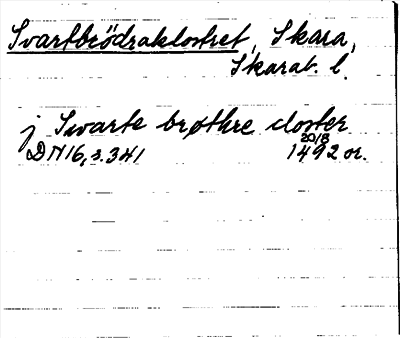 Svartbrödraklostret, Skara,
Skarab. l.
j Swarte brøthre closter
20/8
DN16, s. 341 1492 or.